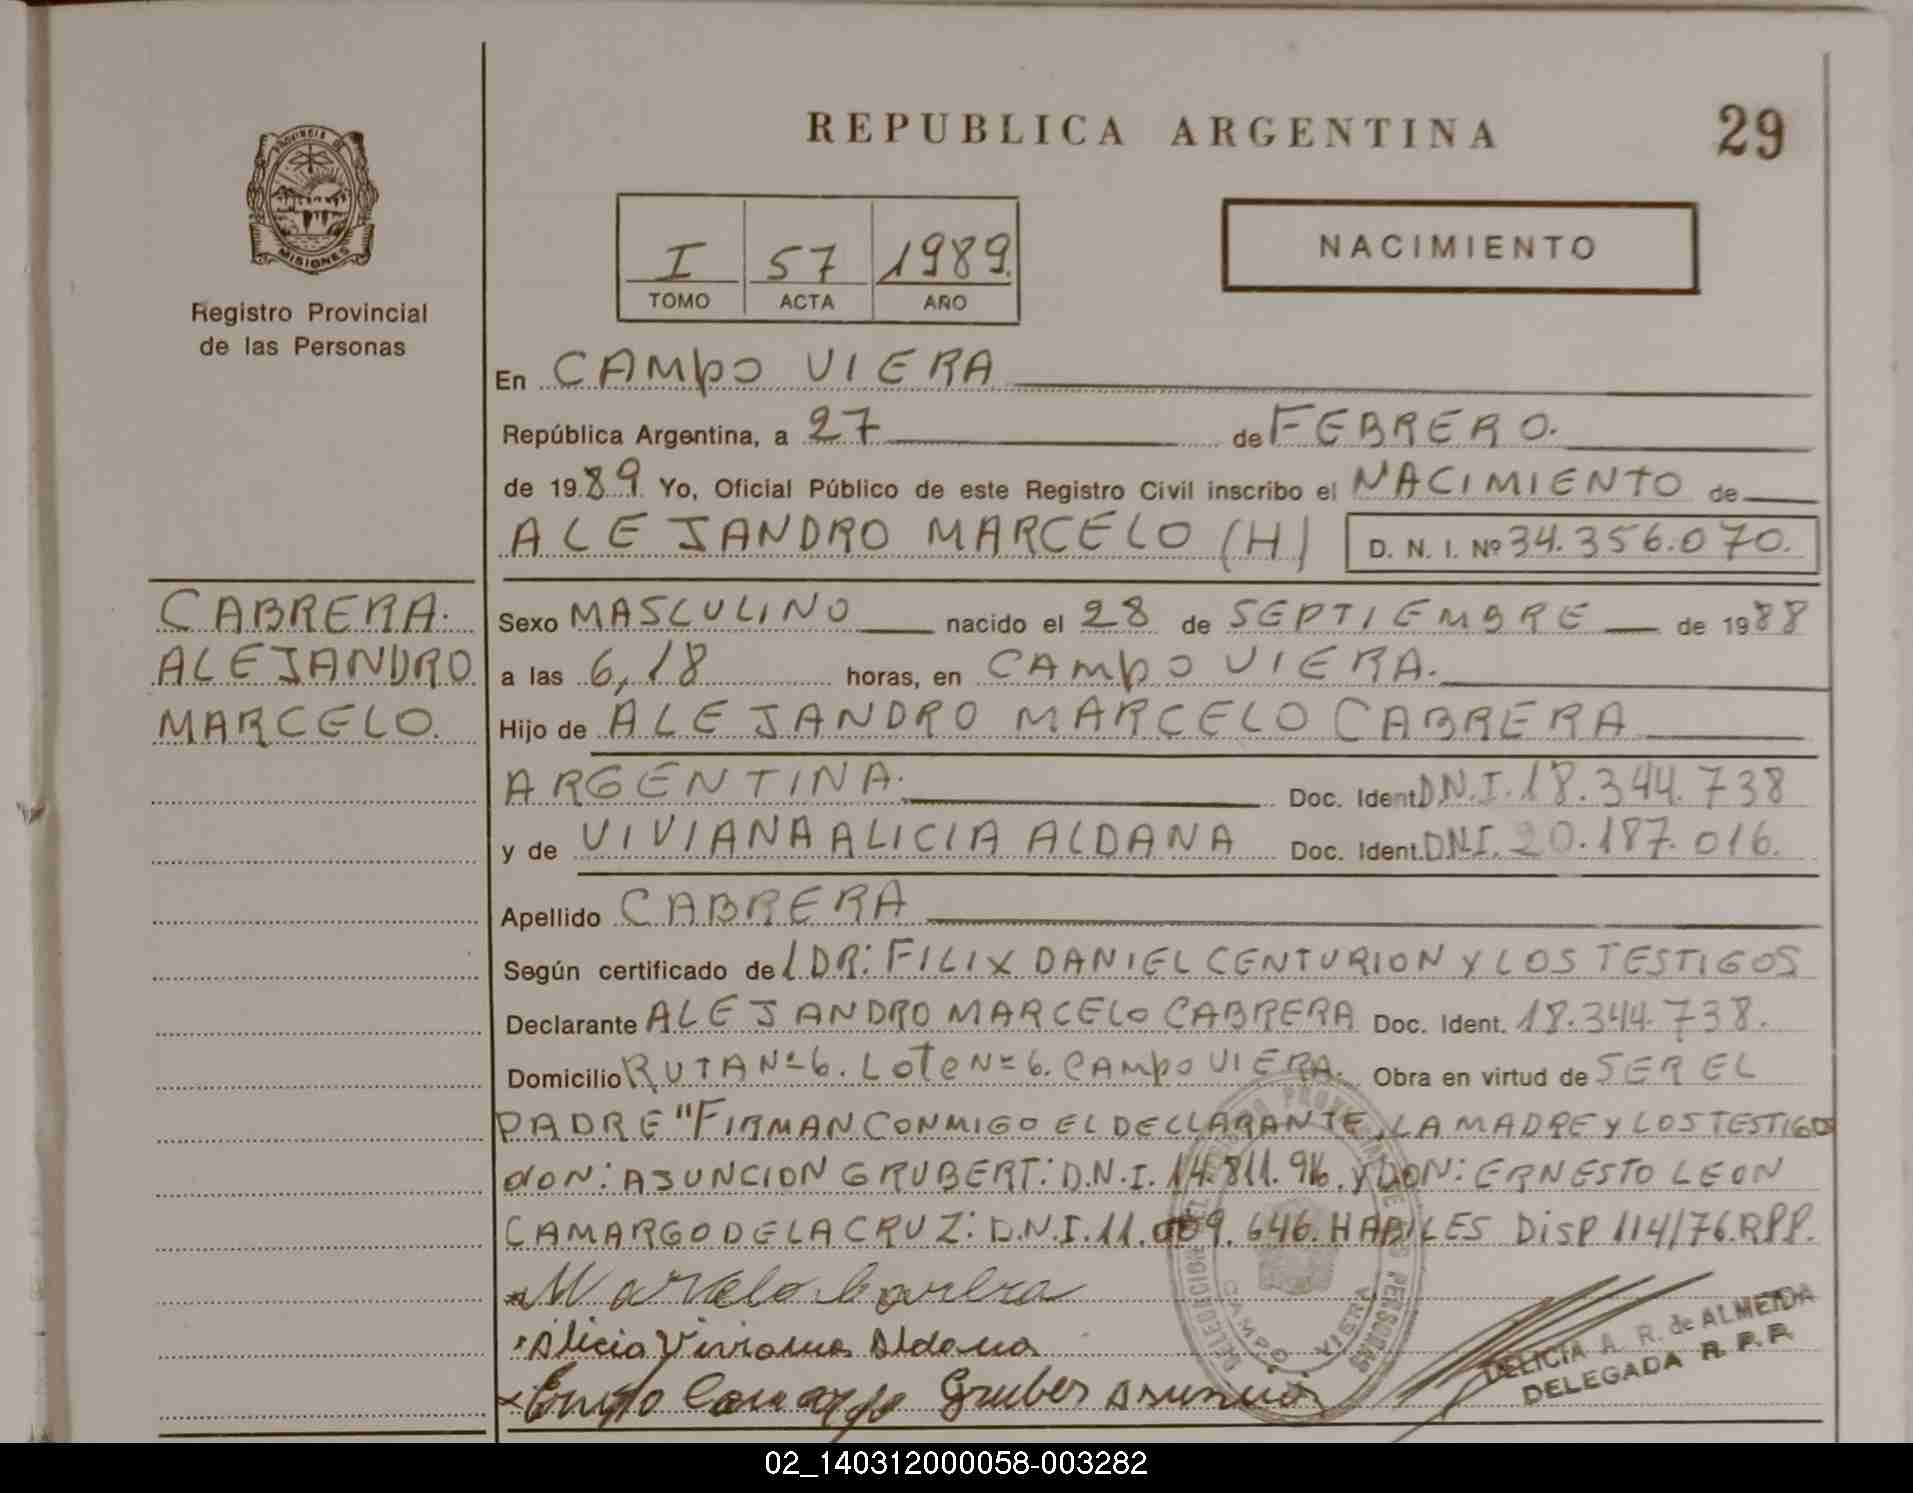 REPUBLICA ARGENTINA
29
PROVINCIA DE
MISIONES
Registro Provincial
de las Personas
I 57 1989.
TOMO ACTA AÑO
NACIMIENTO
En CAMPO VIERA
República Argentina, a 27 de FEBRERO.
de 1989. Yo, Oficial Público de este Registro Civil inscribo el NACIMIENTO de
ALEJANDRO MARCELO (H) D. N. I. Nº 34.356.070.
CABRERA.
ALEJANDRO
MARCELO.
Sexo MASCULINO nacido el 28 de SEPTIEMBRE de 1988
a las 6,18 horas, en CAMPO VIERA.
Hijo de ALEJANDRO MARCELO CABRERA
ARGENTINA. Doc. Ident. D.N.I. 18.344.738
y de VIVIANA ALICIA ALDANA Doc. Ident. DNI. 20.187.016.
Apellido CABRERA
Según certificado del DR: FILIX DANIEL CENTURION Y LOS TESTIGOS
Declarante ALEJANDRO MARCELO CABRERA Doc. Ident. 18.344.738.
Domicilio RUTA Nº 6. Lote Nº 6. CAMPO VIERA. Obra en virtud de SER EL
PADRE "FIRMAN CONMIGO EL DECLARANTE, LA MADRE Y LOS TESTIGO
DON: ASUNCION GRUBERT: D.N.I. 14.811.916. Y DON: ERNESTO LEON
CAMARGO DE LA CRUZ: D.N.I. 11.009.646. HABILES DISP 114/76.RPP.
Marcelo Cabrera
Alicia Viviana Aldana
Camargo Gruber Asuncion
CAMPO VIERA
DELICIA A. R. de ALMEIDA
DELEGADA R. P. P.
02_140312000058-003282